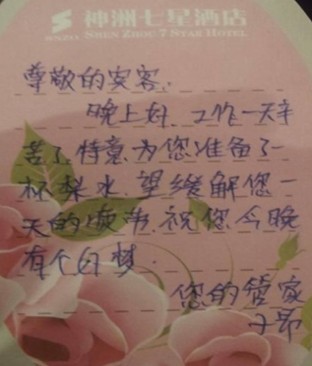 神洲七星酒店
SHEN ZHOU 7 STAR HOTEL
尊敬的宾客.
晚上好.工作一天辛
苦了.特意为您准备了一
杯梨水.望缓解您一
天的疲劳.祝您今晚
有个好梦.
您的管家